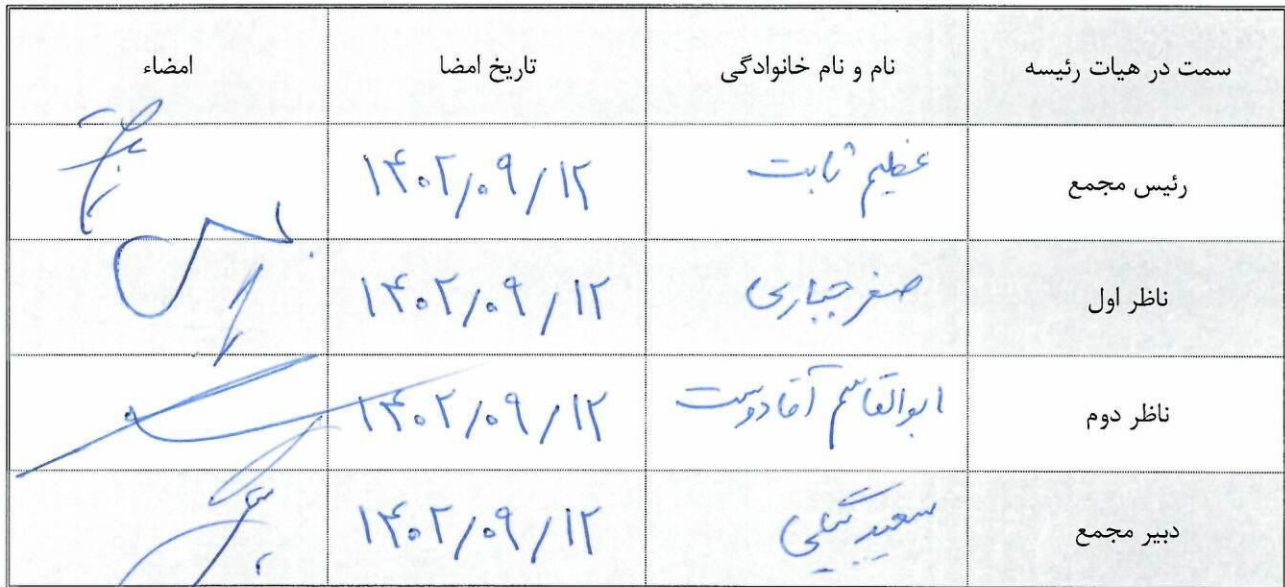 سمت در هیات رئیسه نام و نام خانوادگی تاریخ امضا امضاء
رئیس مجمع عظیم ثابت ۱۴۰۲/۰۹/۱۲
ناظر اول صفر جباری ۱۴۰۲/۰۹/۱۲
ناظر دوم ابوالقاسم آقادوست ۱۴۰۲/۰۹/۱۲
دبیر مجمع سعید ۱۴۰۲/۰۹/۱۲